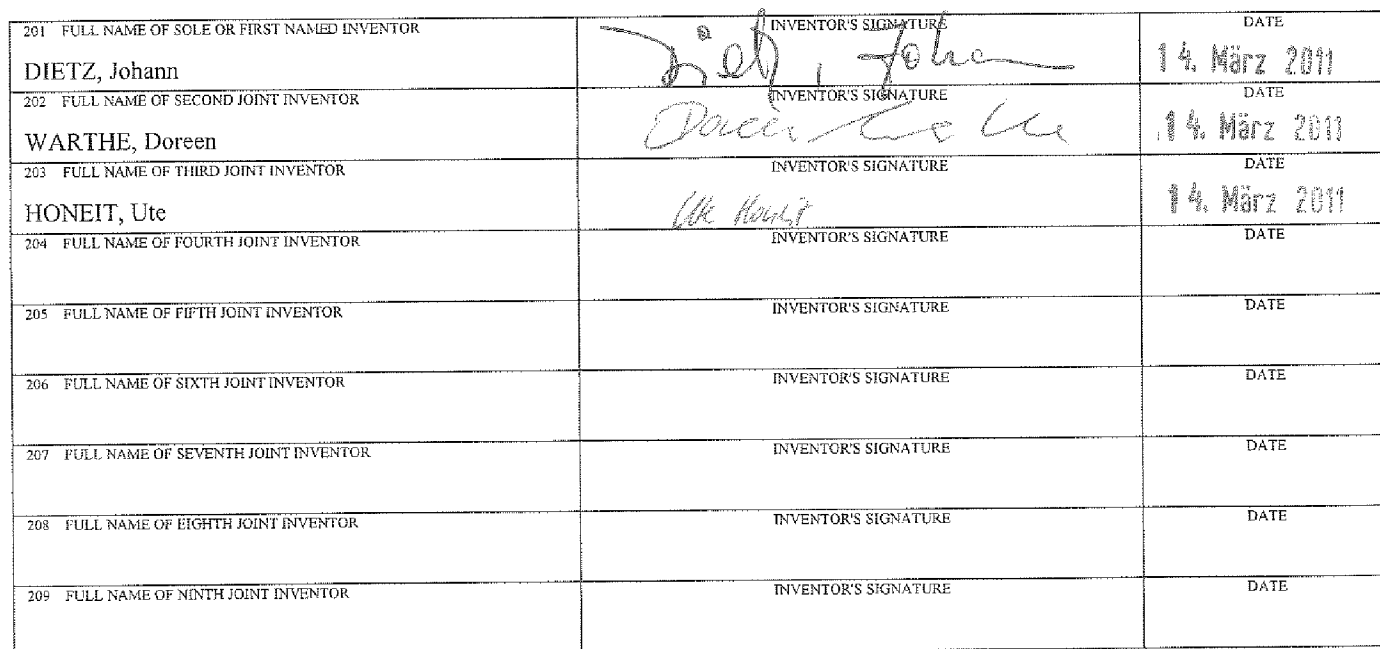 201 FULL NAME OF SOLE OR FIRST NAMED INVENTOR INVENTOR'S SIGNATURE DATE
DIETZ, Johann Dietz, Johann 14. März 2011
202 FULL NAME OF SECOND JOINT INVENTOR INVENTOR'S SIGNATURE DATE
WARTHE, Doreen Doreen Warthe 14. März 2011
203 FULL NAME OF THIRD JOINT INVENTOR INVENTOR'S SIGNATURE DATE
HONEIT, Ute Ute Honeit 14. März 2011
204 FULL NAME OF FOURTH JOINT INVENTOR INVENTOR'S SIGNATURE DATE
205 FULL NAME OF FIFTH JOINT INVENTOR INVENTOR'S SIGNATURE DATE
206 FULL NAME OF SIXTH JOINT INVENTOR INVENTOR'S SIGNATURE DATE
207 FULL NAME OF SEVENTH JOINT INVENTOR INVENTOR'S SIGNATURE DATE
208 FULL NAME OF EIGHTH JOINT INVENTOR INVENTOR'S SIGNATURE DATE
209 FULL NAME OF NINTH JOINT INVENTOR INVENTOR'S SIGNATURE DATE